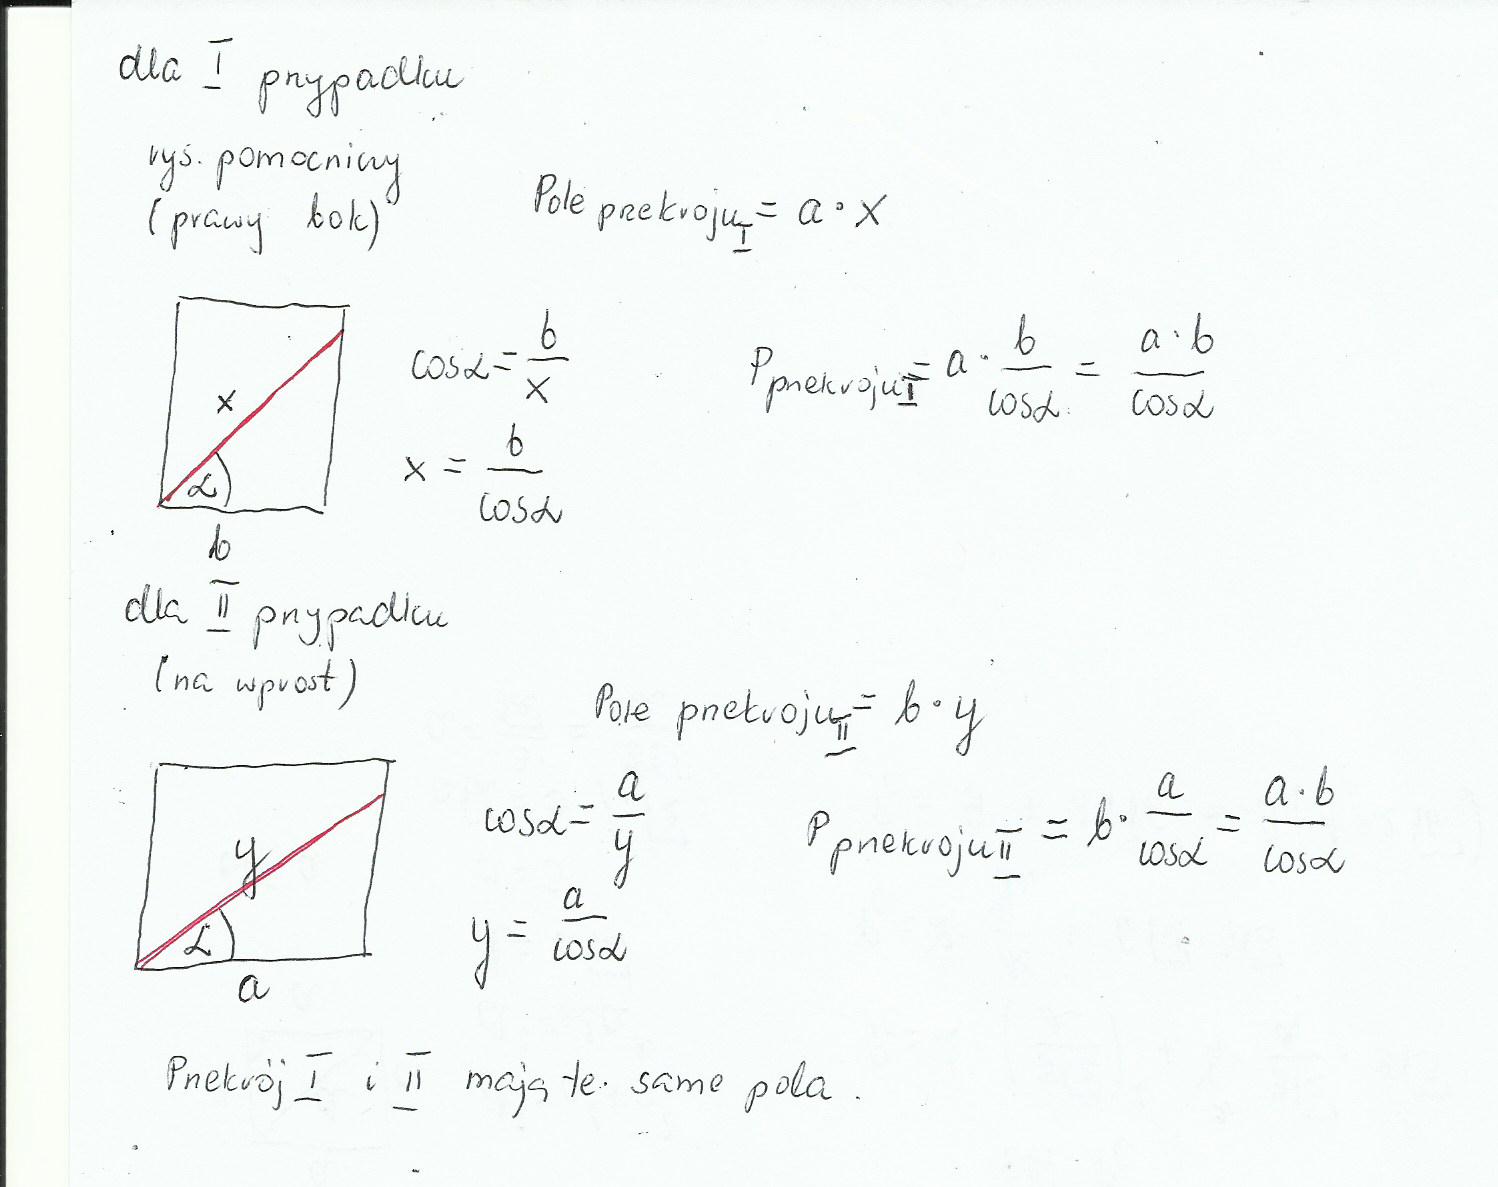 dla I przypadku
rys. pomocniczy
(prawy bok)
Pole przekroju I = a · x
x
α
b
cosα = b/x
x = b/cosα
P przekroju I = a · b/cosα = a · b/cosα
dla II przypadku
(na wprost)
Pole przekroju II = b · y
y
α
a
cosα = a/y
y = a/cosα
P przekroju II = b · a/cosα = a · b/cosα
Przekrój I i II mają te same pola.